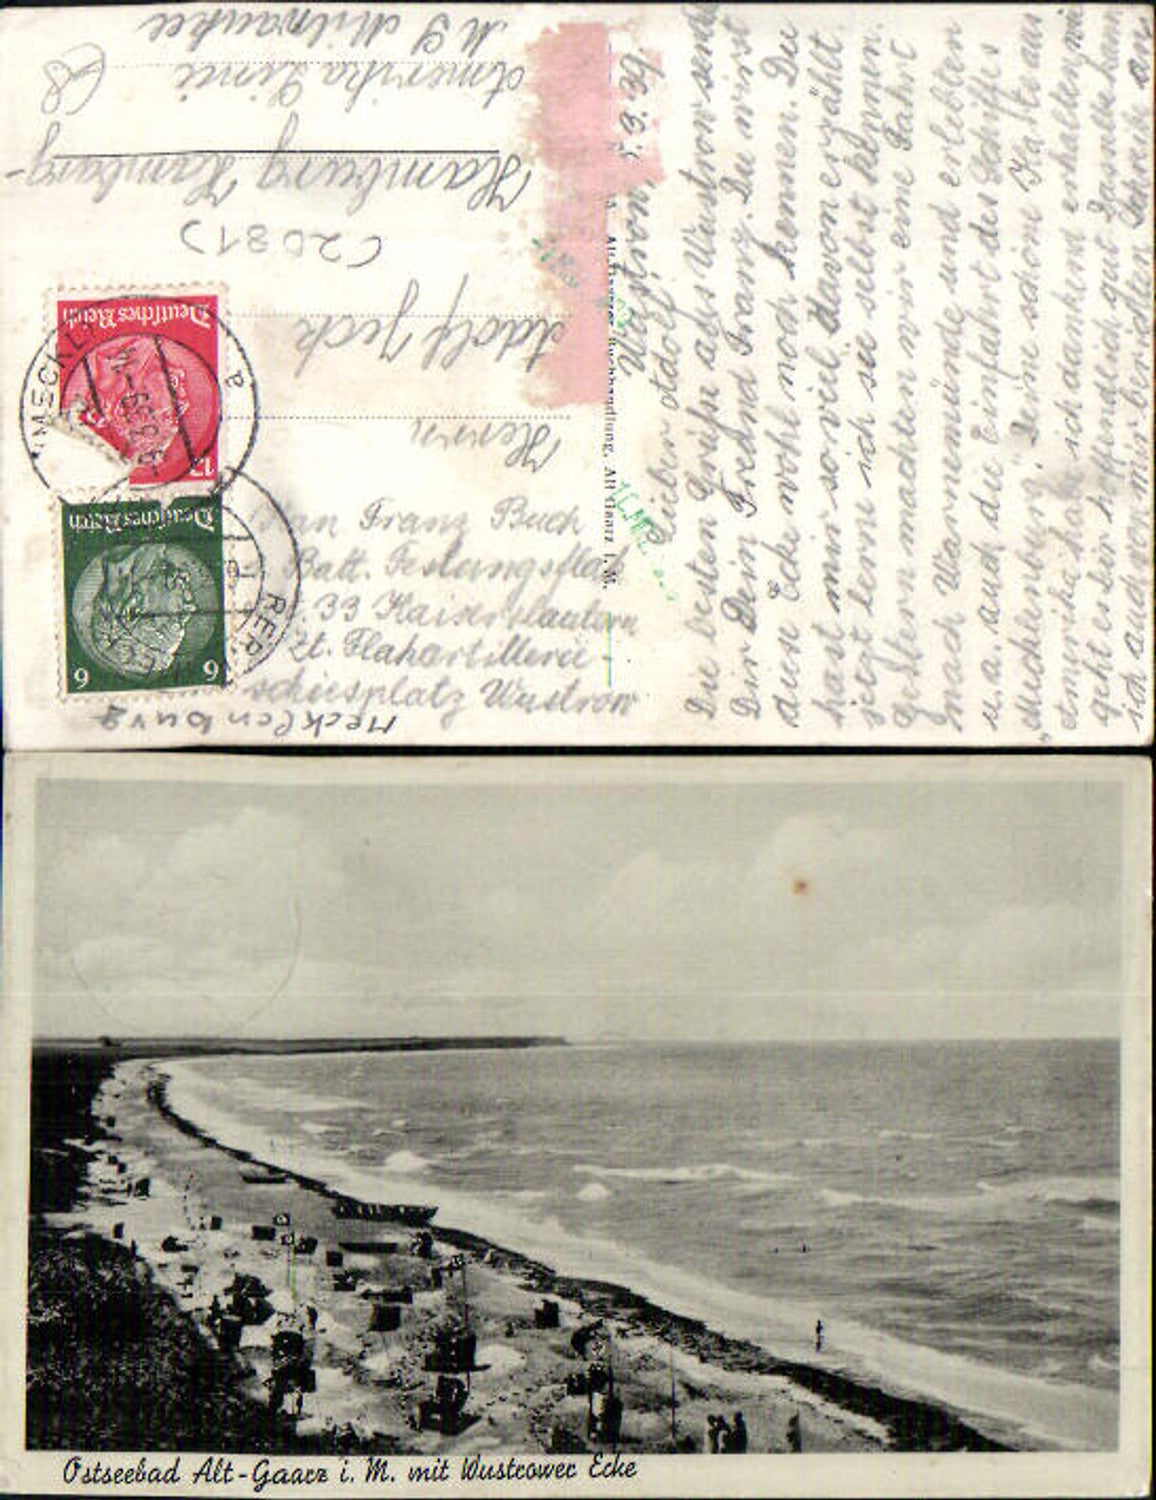 Wustrow 5.3.39.
Lieber Adolf!
Die besten Grüße aus Wustrow sendet
Dir Dein Freund Franz. Du wirst
diese Ecke wohl noch kennen. Du
hast mir soviel davon erzählt.
jetzt lerne ich sie selbst kennen.
Gestern machten wir eine Fahrt
nach Warnemünde und erlebten
u. a. auch die Einfahrt des Schiffes
"Mecklenburg". Deine schöne Karte aus
Amerika habe ich dankend erhalten, wie
geht es Dir hoffendlich gut. Dasselbe kann
ich auch von mir berichten. Schreibe an
Buchhandlung, Alt Gaarz i. M.
Herrn
Adolf Jeck
(20a31)
Hamburg Hamburg-
Amerika Linie
M S Milwaukee
68
Deutsches Reich
12
Deutsches Reich
6
6
MECKL
Franz Buch
Batt. Festungsflak
33 Kaiserslautern
zt. Flakartillerie
schiesplatz Wustrow
Mecklenburg
Ostseebad Alt-Gaarz i. M. mit Wustrower Ecke